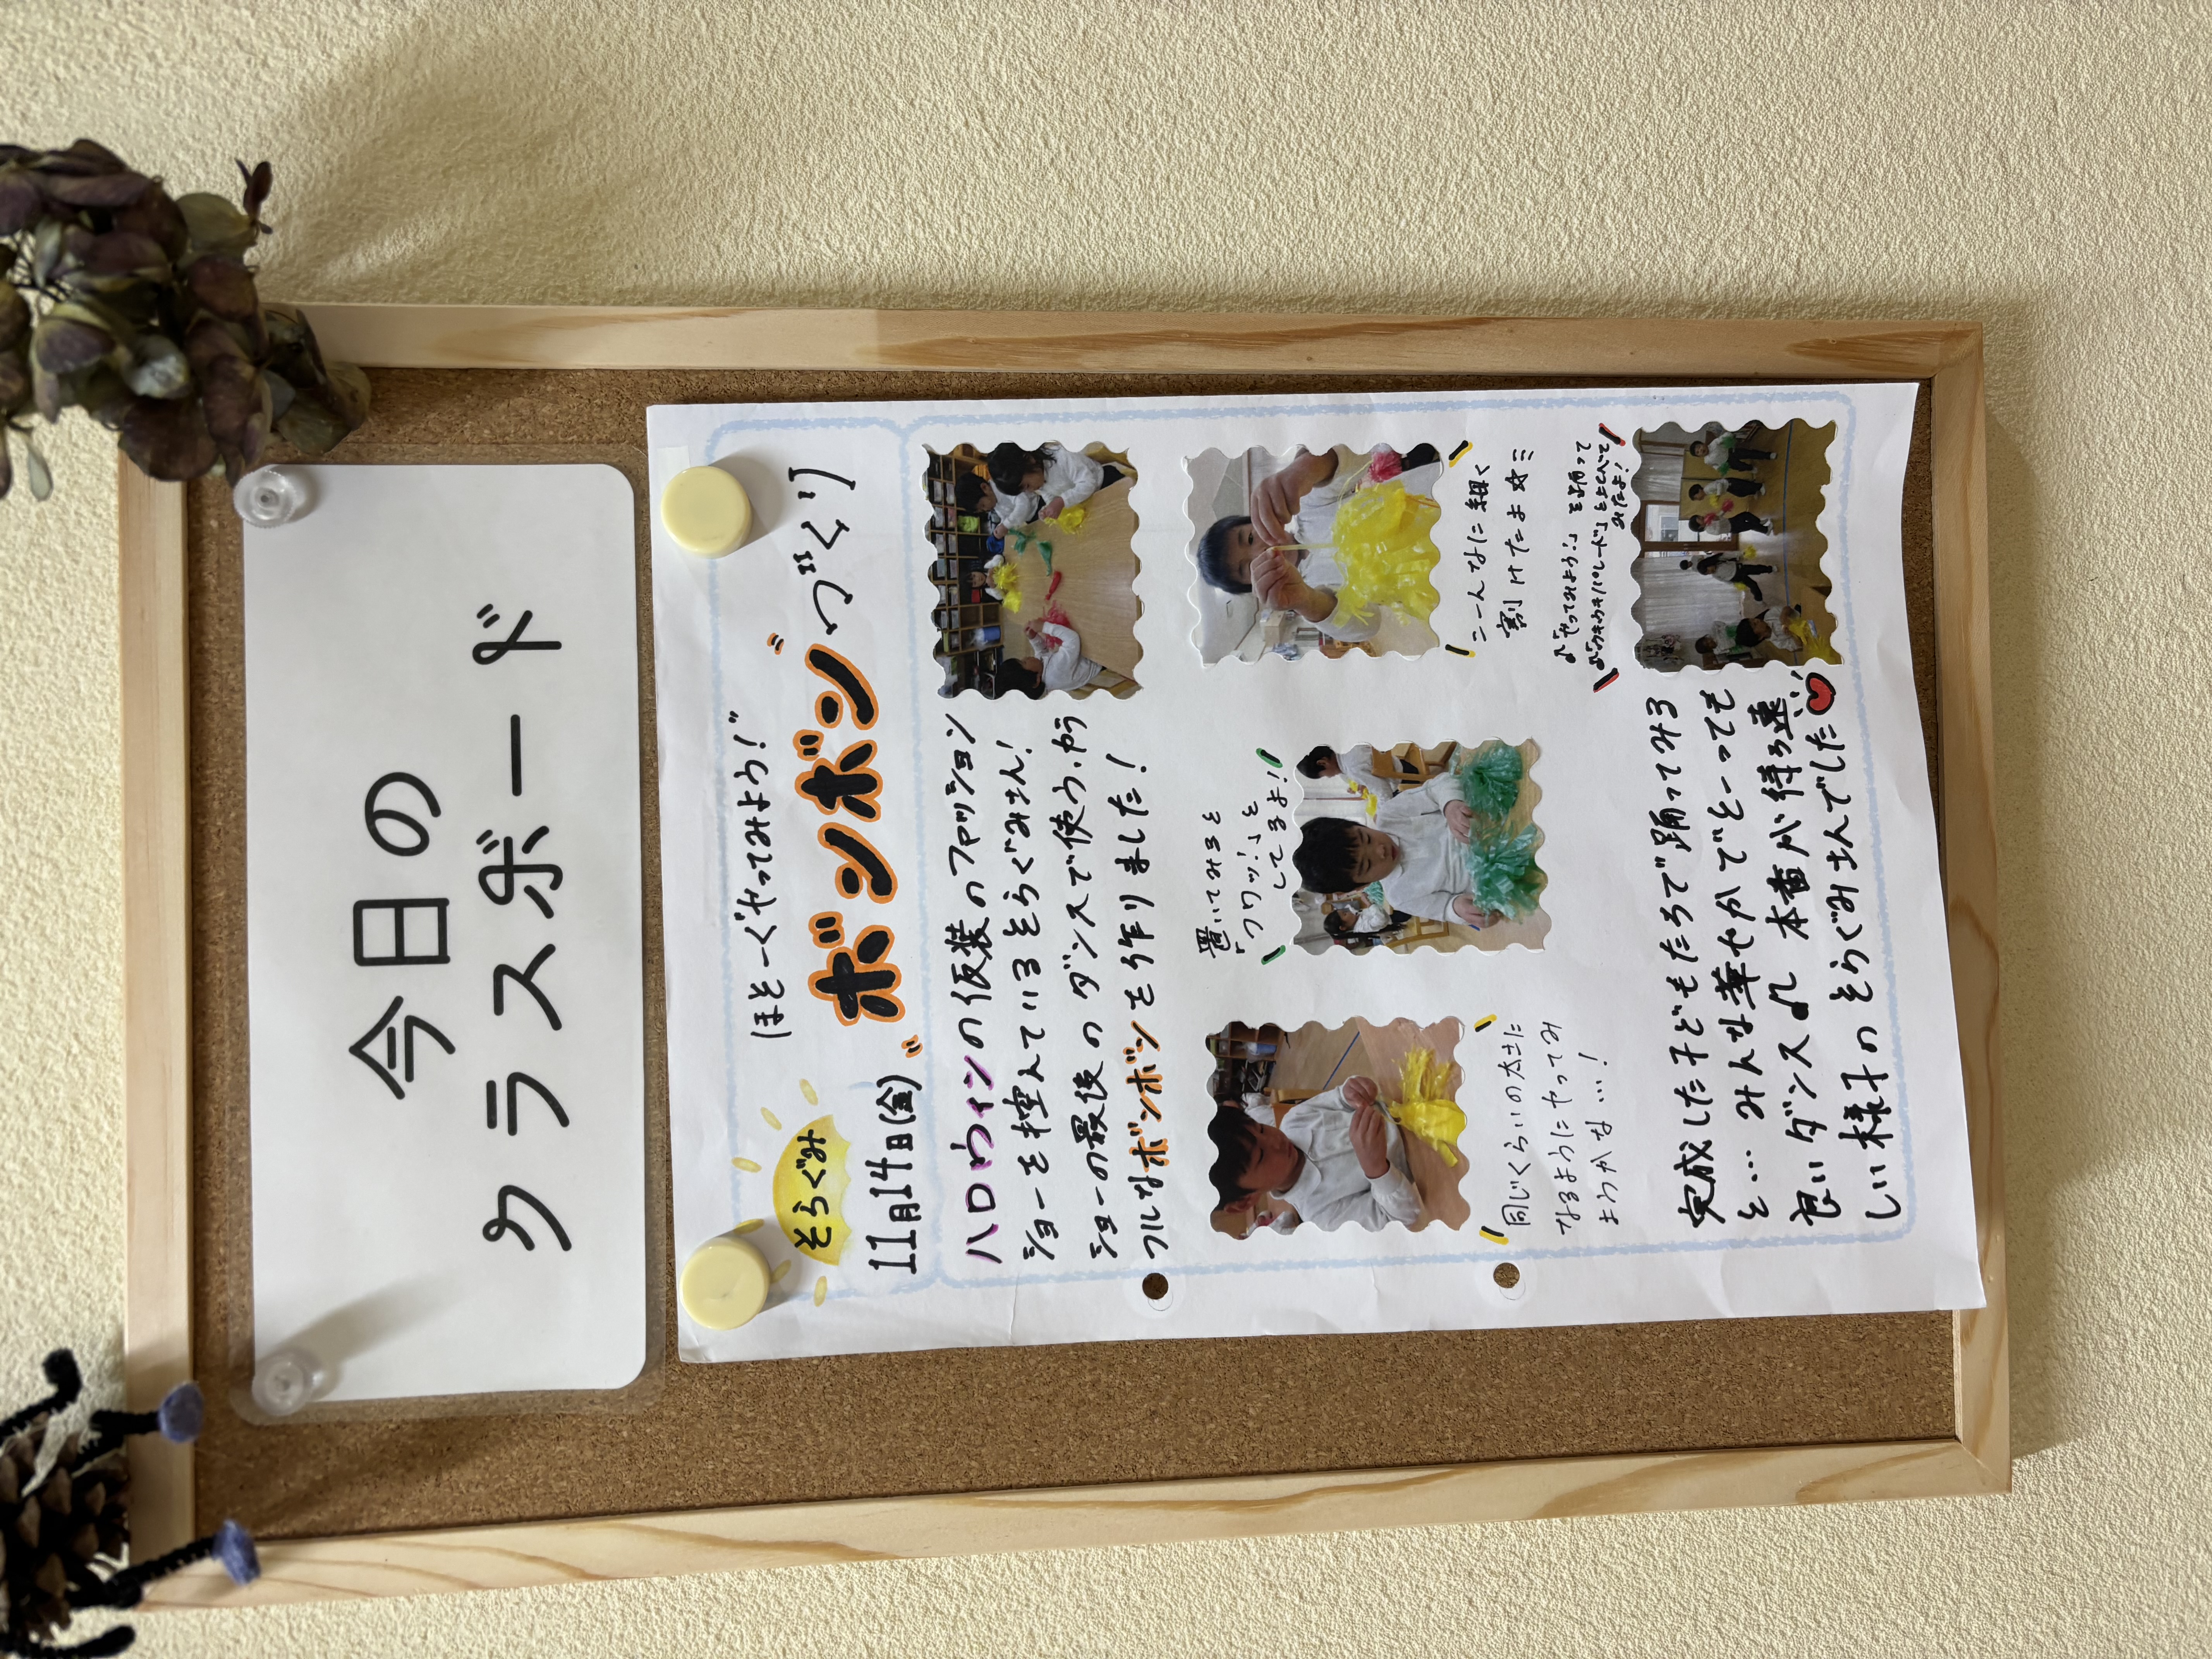 今日の
クラスボード
そらぐみ
11月14日(金)
ほそーくやってみよう!"
"ボンボン"づくり
ハロウィンの仮装のファッション
ショーを控えているそらぐみさん!
ショーの最後のダンスで使う、カラ
フルなボンボンを作りました!
同じくらいの太さに
なるようにやってみ
ようかな…!
置いてみると
「フワッ!」と
してるよ!
こーんなに細く
割けたよ
♪「やってみよう!」を踊って
♪「ウキウキパレード」をとんで
みたよ!
完成した子どもたちで踊ってみる
と… みんな華やかでとーっても
良いダンス♪ 本番が待ち遠
しい様子のそらぐみさんでした